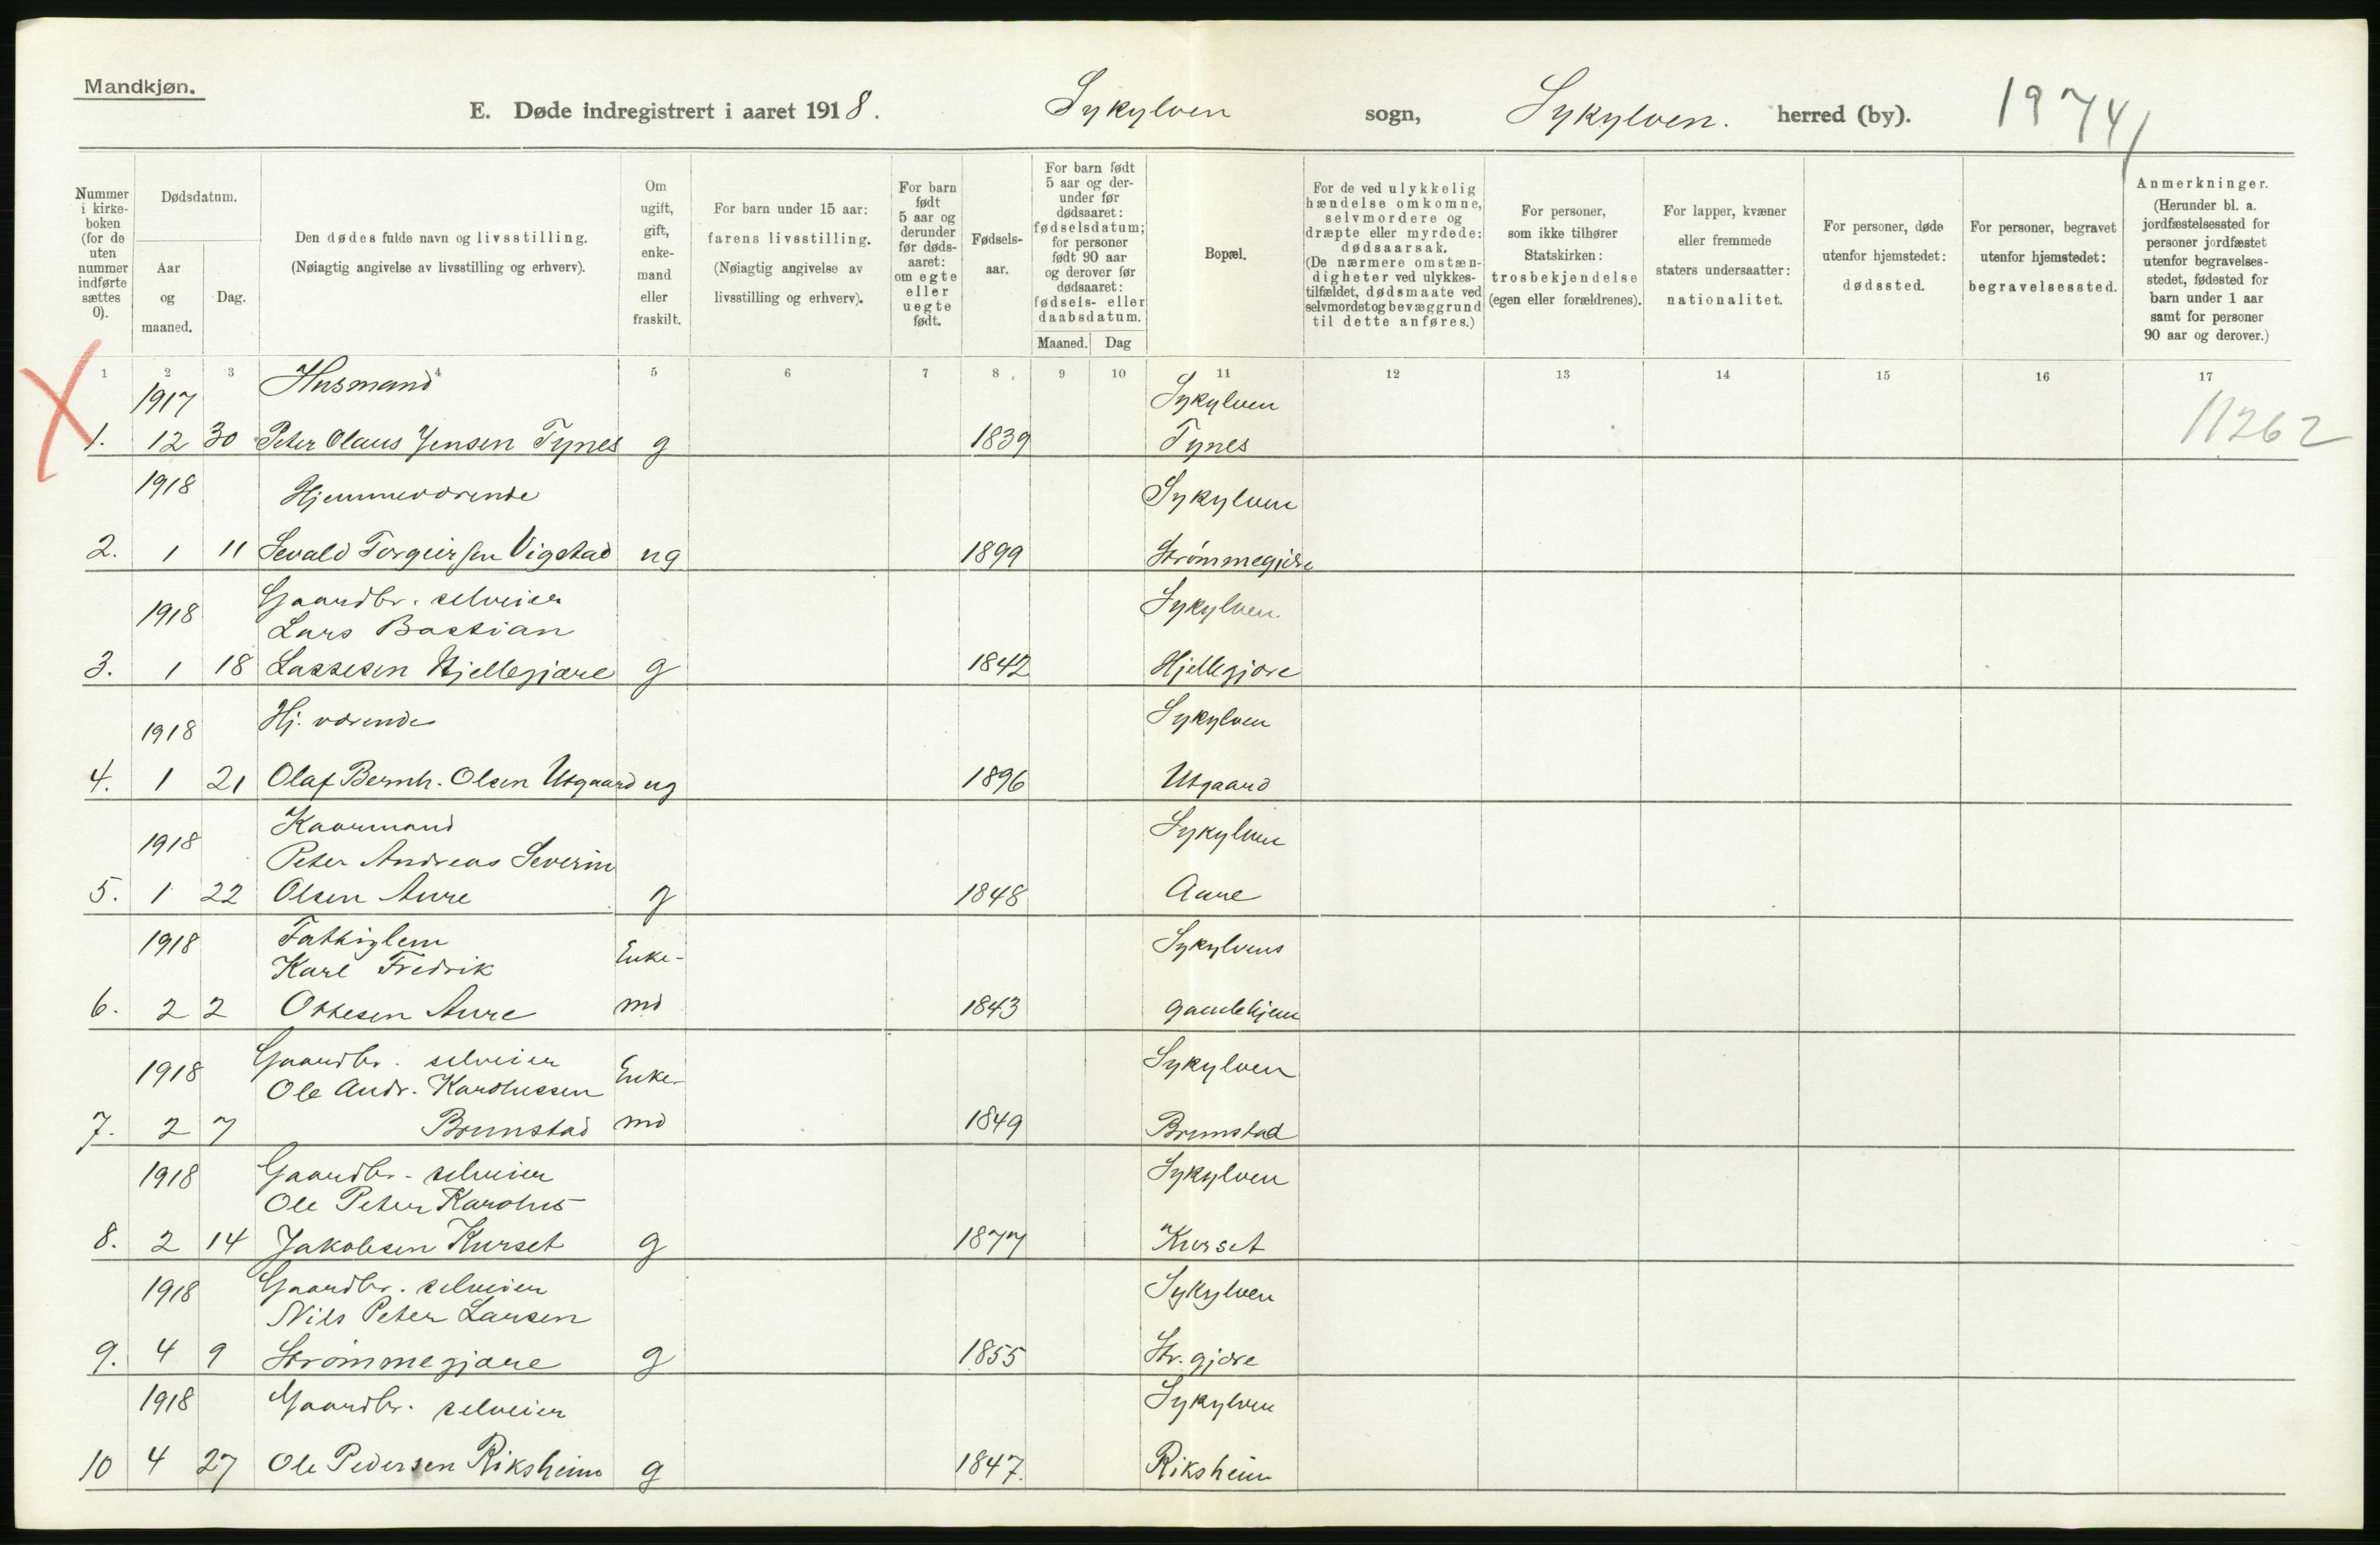 Mandkjøn.
E. Døde indregistrert i aaret 1918. Sykylven sogn, Sykylven. herred (by). 1974/
Nummer i kirke-boken (for de uten nummer indførte sættes 0).
Dødsdatum.
Aar og maaned.
Dag.
Den dødes fulde navn og livsstilling.
(Nøiagtig angivelse av livsstilling og erhverv).
Om ugift, gift, enke-mand eller fraskilt.
For barn under 15 aar:
farens livsstilling.
(Nøiagtig angivelse av livsstilling og erhverv).
For barn født 5 aar og derunder før døds-aaret: om egte eller uegte født.
Fødsels-aar.
For barn født 5 aar og der-under før dødsaaret: fødselsdatum; for personer født 90 aar og derover før dødsaaret: fødsels- eller daabsdatum.
Maaned. Dag
Bopæl.
For de ved ulykkelig hændelse omkomne, selvmordere og dræpte eller myrdede: dødsaarsak.
(De nærmere omstæn-digheter ved ulykkes-tilfældet, dødsmaate ved selvmordet og bevæggrund til dette anføres.)
For personer, som ikke tilhører Statskirken: trosbekjendelse (egen eller forældrenes).
For lapper, kvæner eller fremmede staters undersaatter: nationalitet.
For personer, døde utenfor hjemstedet: dødssted.
For personer, begravet utenfor hjemstedet: begravelsessted.
Anmerkninger.
(Herunder bl. a. jordfæstelsessted for personer jordfæstet utenfor begravelses-stedet, fødested for barn under 1 aar samt for personer 90 aar og derover.)
1 2 3 4 5 6 7 8 9 10 11 12 13 14 15 16 17
1917 Husmand Sykylven
1. 12 30 Peter Olaus Jensen Tynes g 1839 Tynes 11262
1918 Hjemmeværende Sykylven
2. 1 11 Sevald Torgeirsen Vigstad ug 1899 Strømmegjære
1918 Gaardbr. selveier Sykylven
Lars Bastian
3. 1 18 Lassesen Hjellegjære g 1842 Hjellegjære
1918 Hj. værende Sykylven
4. 1 21 Olaf Bernh. Olsen Utgaard ug 1896 Utgaard
1918 Kaarmand Sykylven
Peter Andreas Severin
5. 1 22 Olsen Aure g 1848 Aure
1918 Fattiglem Enke- Sykylvens
Karl Fredrik
6. 2 2 Ottesen Aure md 1843 gamlehjem
1918 Gaardbr. selveier Enke- Sykylven
Ole Andr. Karolussen
7. 2 7 Brunstad md 1849 Brunstad
1918 Gaardbr. selveier Sykylven
Ole Peter Karolus
8. 2 14 Jakobsen Kurset g 1877 Kurset
1918 Gaardbr. selveier Sykylven
Nils Peter Larsen
9. 4 9 Strømmegjære g 1855 Str.gjære
1918 Gaardbr. selveier Sykylven
10 4 27 Ole Pedersen Riksheim g 1847. Riksheim